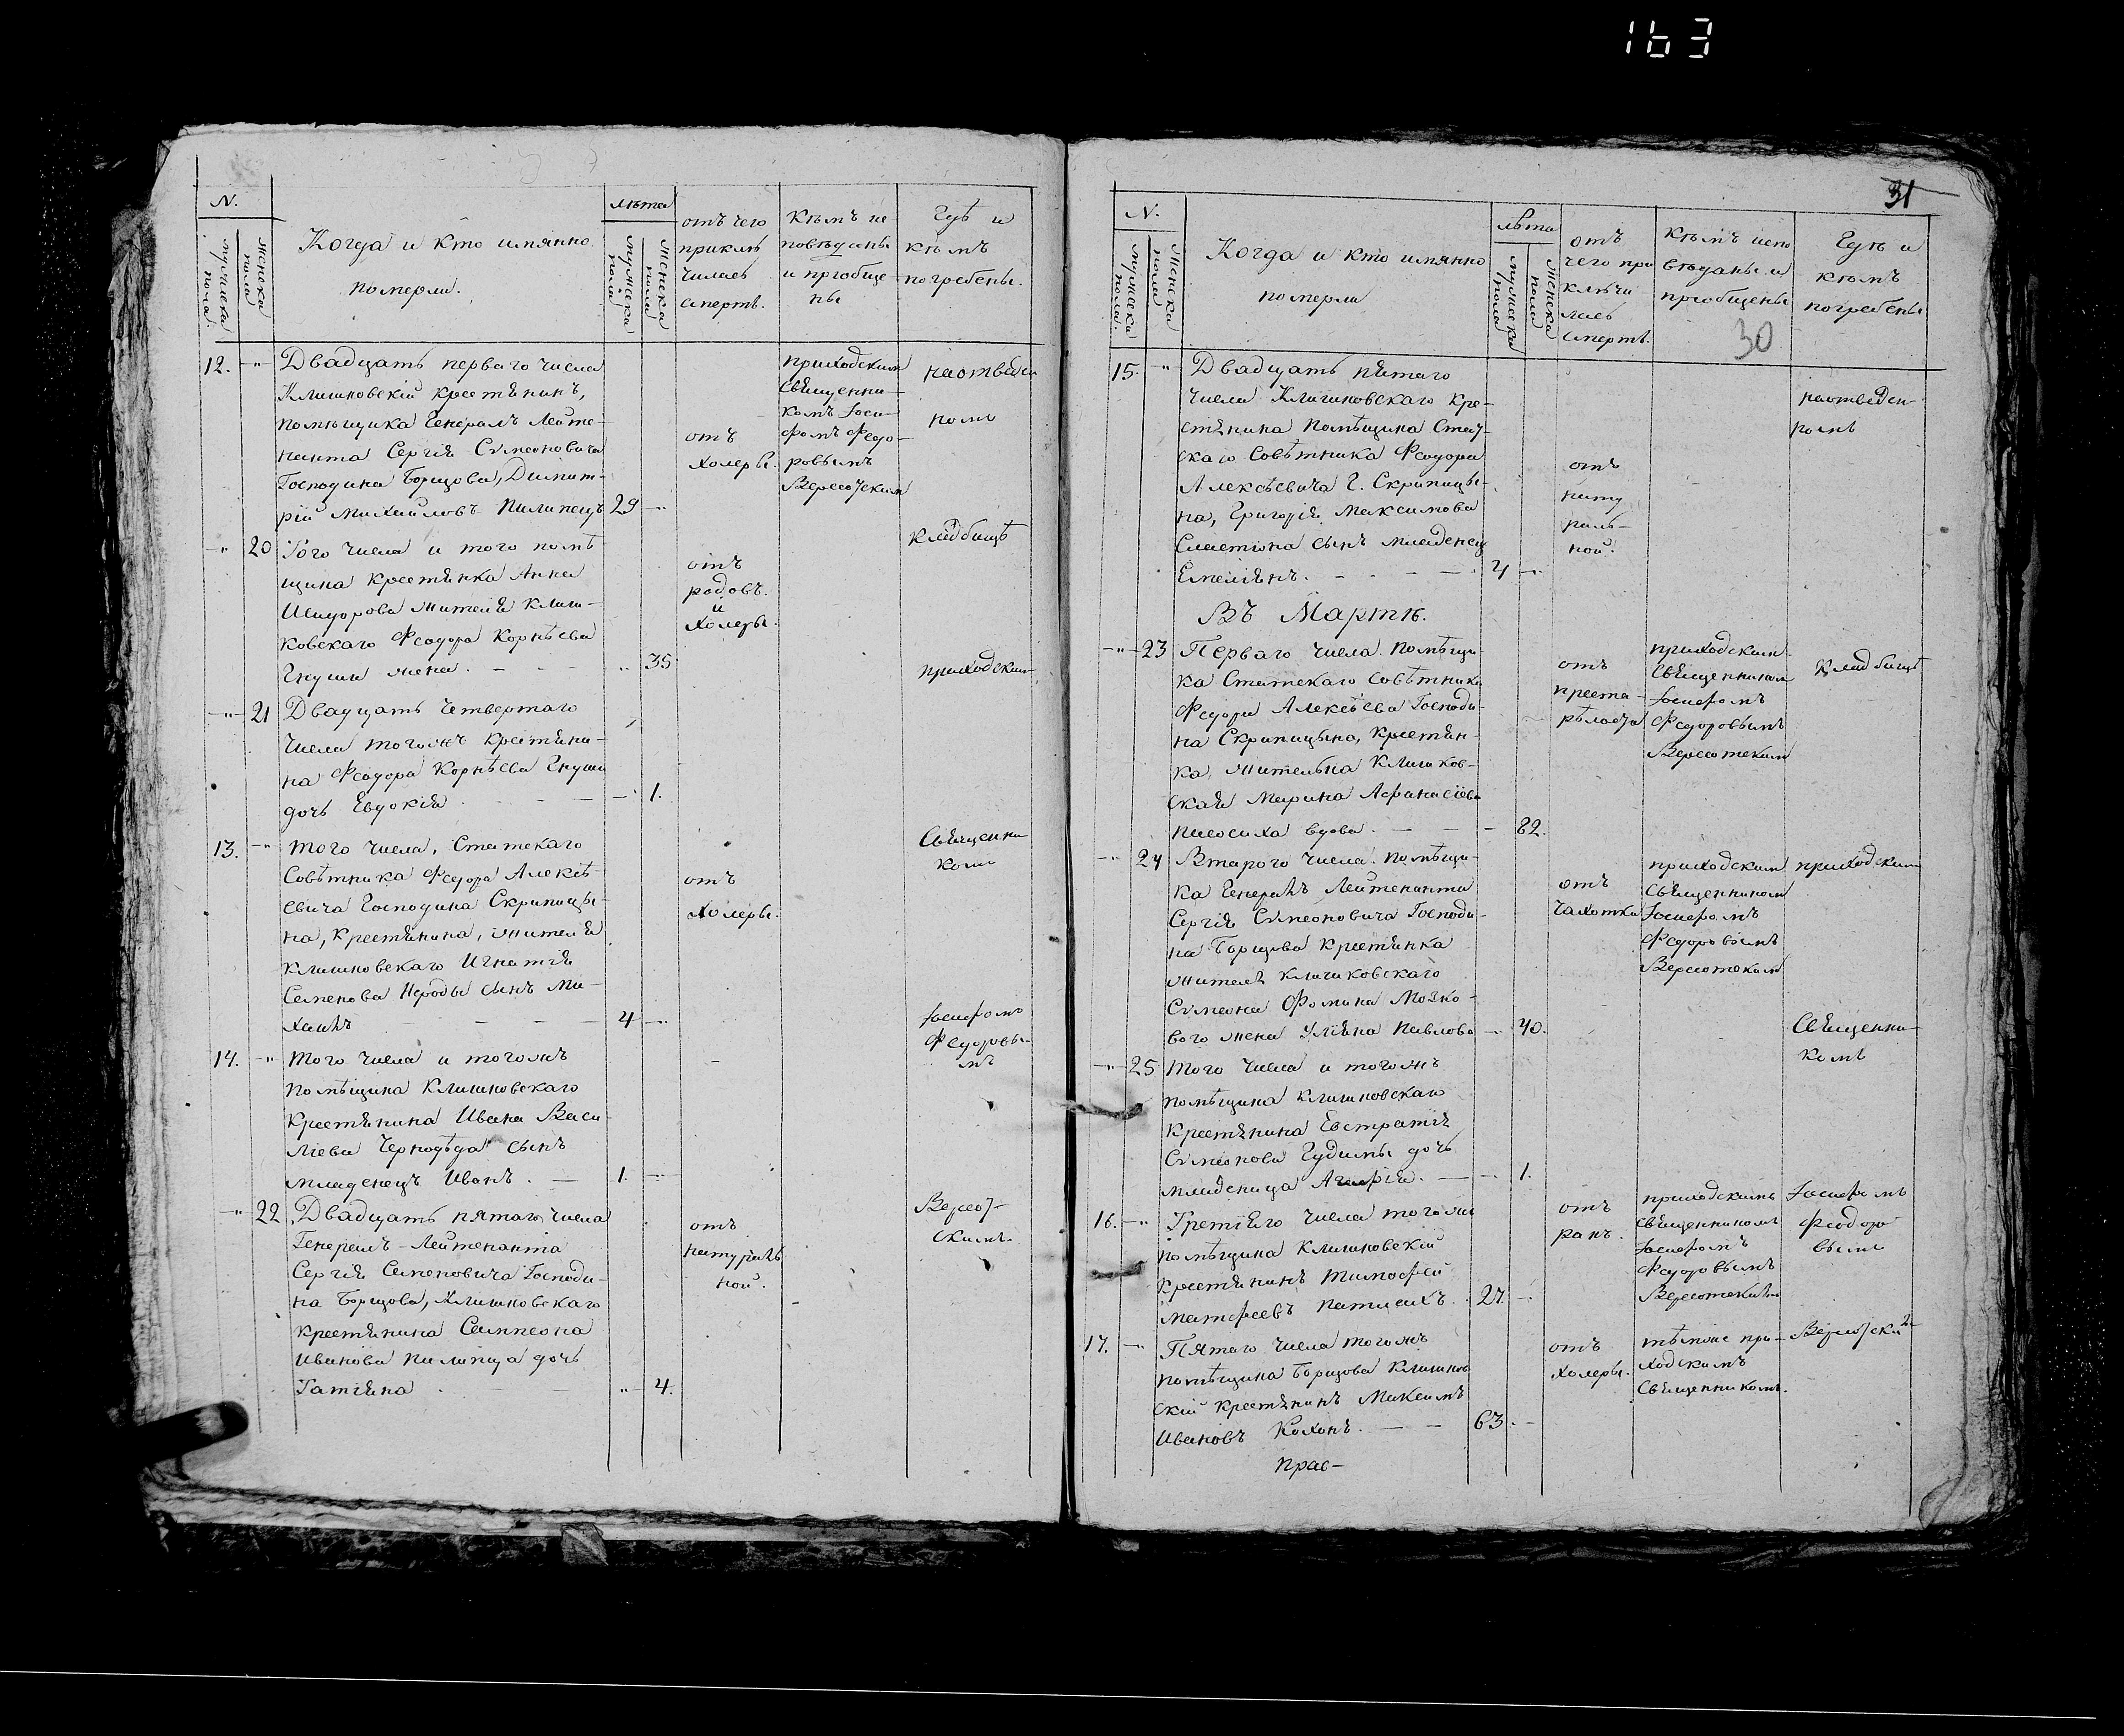 163
N.
мужеска пола.
женска пола
Когда и кто имянно
померли.
лѣта
мужеска пола
женска пола
отъ чего
приклю
чилась
смерть.
Кѣмъ ис
повѣданы
и пріобще
ны
Гдѣ и
кѣмъ
погребены.
12. -"- Двадцать перваго числа
Клишковскій крестянинъ,
помѣщика Генералъ Лейте-
нанта Сергія Сѵмеоновича
Господина Борщова, Димит-
рій Михайловъ Пилипецъ 29 -
отъ
холеры.
приходскимъ
Священни-
комъ Іоси-
фомъ Федо-
ровымъ
Вересотским
на отведен
номъ
-"- 20 Того числа и того помѣ
щика крестянка Анна
Исидорова жителя Клиш-
ковскаго Феодора Корнѣева
Гнуши жена. - - - " 35
отъ
родовъ.
и
холеры.
кладбищѣ
приходским
-"- 21 Двадцать четвертаго
числа тогожъ крестяни-
на Феодора Корнѣева Гнуши
дочь Евдокія - - - - 1.
13. -"- того числа, Статскаго
Совѣтника Федора Алексѣ-
евича Господина Скрипицы-
на, крестянина, жителя
клишковскаго Игнатія
Семенова Нероды сынъ Ми-
хаилъ - - - - 4 -
отъ
холеры.
Священни
комъ
Іосифомъ
Федоровы-
мъ
14. -"- того числа и тогожъ
помѣщика Клишковскаго
Крестянина Ивана Васи-
ліева Чернодѣда сынъ
младенецъ Иванъ. - 1. -
-"- 22 Двадцать пятаго числа
Генералъ-Лейтенанта
Сергія Семеновича Господи-
на Борщова, Клишковскаго
крестянина Сампсона
Иванова Пилипца дочь
Татіяна - - - " 4.
отъ
натураль
ной.
Вересот-
скимъ
31
30
N.
мужеска пола.
женска пола
Когда и кто имянно
померли
лѣта
мужеска пола
женска пола
отъ
чего при
ключи
лась
смерть.
кѣмъ испо
вѣданы и
пріобщены
Гдѣ и
кѣмъ
погребены
15. -"- Двадцать пятаго
числа Клишковскаго кре-
стянина Помѣщика Стат-
скаго Совѣтника Феодора
Алексѣевича Г. Скрипицы-
на, Григорія Максимова
Сластіона сынъ младенец
Емеліянъ. - - - - 4 -
отъ
нату
раль-
ной.
на отведен-
номъ
Въ Мартѣ.
-"- 23 Перваго числа. Помѣщи-
ка Статскаго совѣтника
Федора Алексѣева Господи-
на Скрипицына, крестян-
ка, жителька Клишков-
ская Марина Афанасіева
вдова. - - - 82.
отъ
преста-
рѣлости
приходским-
Священником
Іосифомъ
Федоровымъ
Вересотским
кладбищѣ
-"- 24 Втораго числа. помѣщи-
ка Генералъ Лейтенанта
Сергія Сѵмеоновича Господи-
на Борщова крестянка
жителя клишковскаго
Сѵмеона Фомина Мозко-
вого жена Уліяна Павлова - 40.
отъ
чахотки
приходским
Священником
Іосифомъ
Федоровымъ
Вересотским
приходским
Священни
комъ
-"- 25 того числа и тогожъ
помѣщика клишковскаго
крестянина Евстратія
Сѵмеонова Гудимы дочь
младеница Агафія. - - 1.
16. -"- Третіего числа тогожъ
помѣщика клишковскій
крестянинъ Тимофей
Матфеевъ 27. -
отъ
ранъ.
приходскимъ
священникомъ
Іосифомъ
Федоровымъ
Вересотскимъ
Іосифомъ
Феодоро
вымъ
17. -"- Пятаго числа тогожъ
помѣщика Борщова клишков
скій крестянинъ Максимъ
Ивановъ Коханъ. - - 63. -
отъ
холеры.
тѣмже при-
ходскимъ
Священникомъ.
Вересотски
прас-